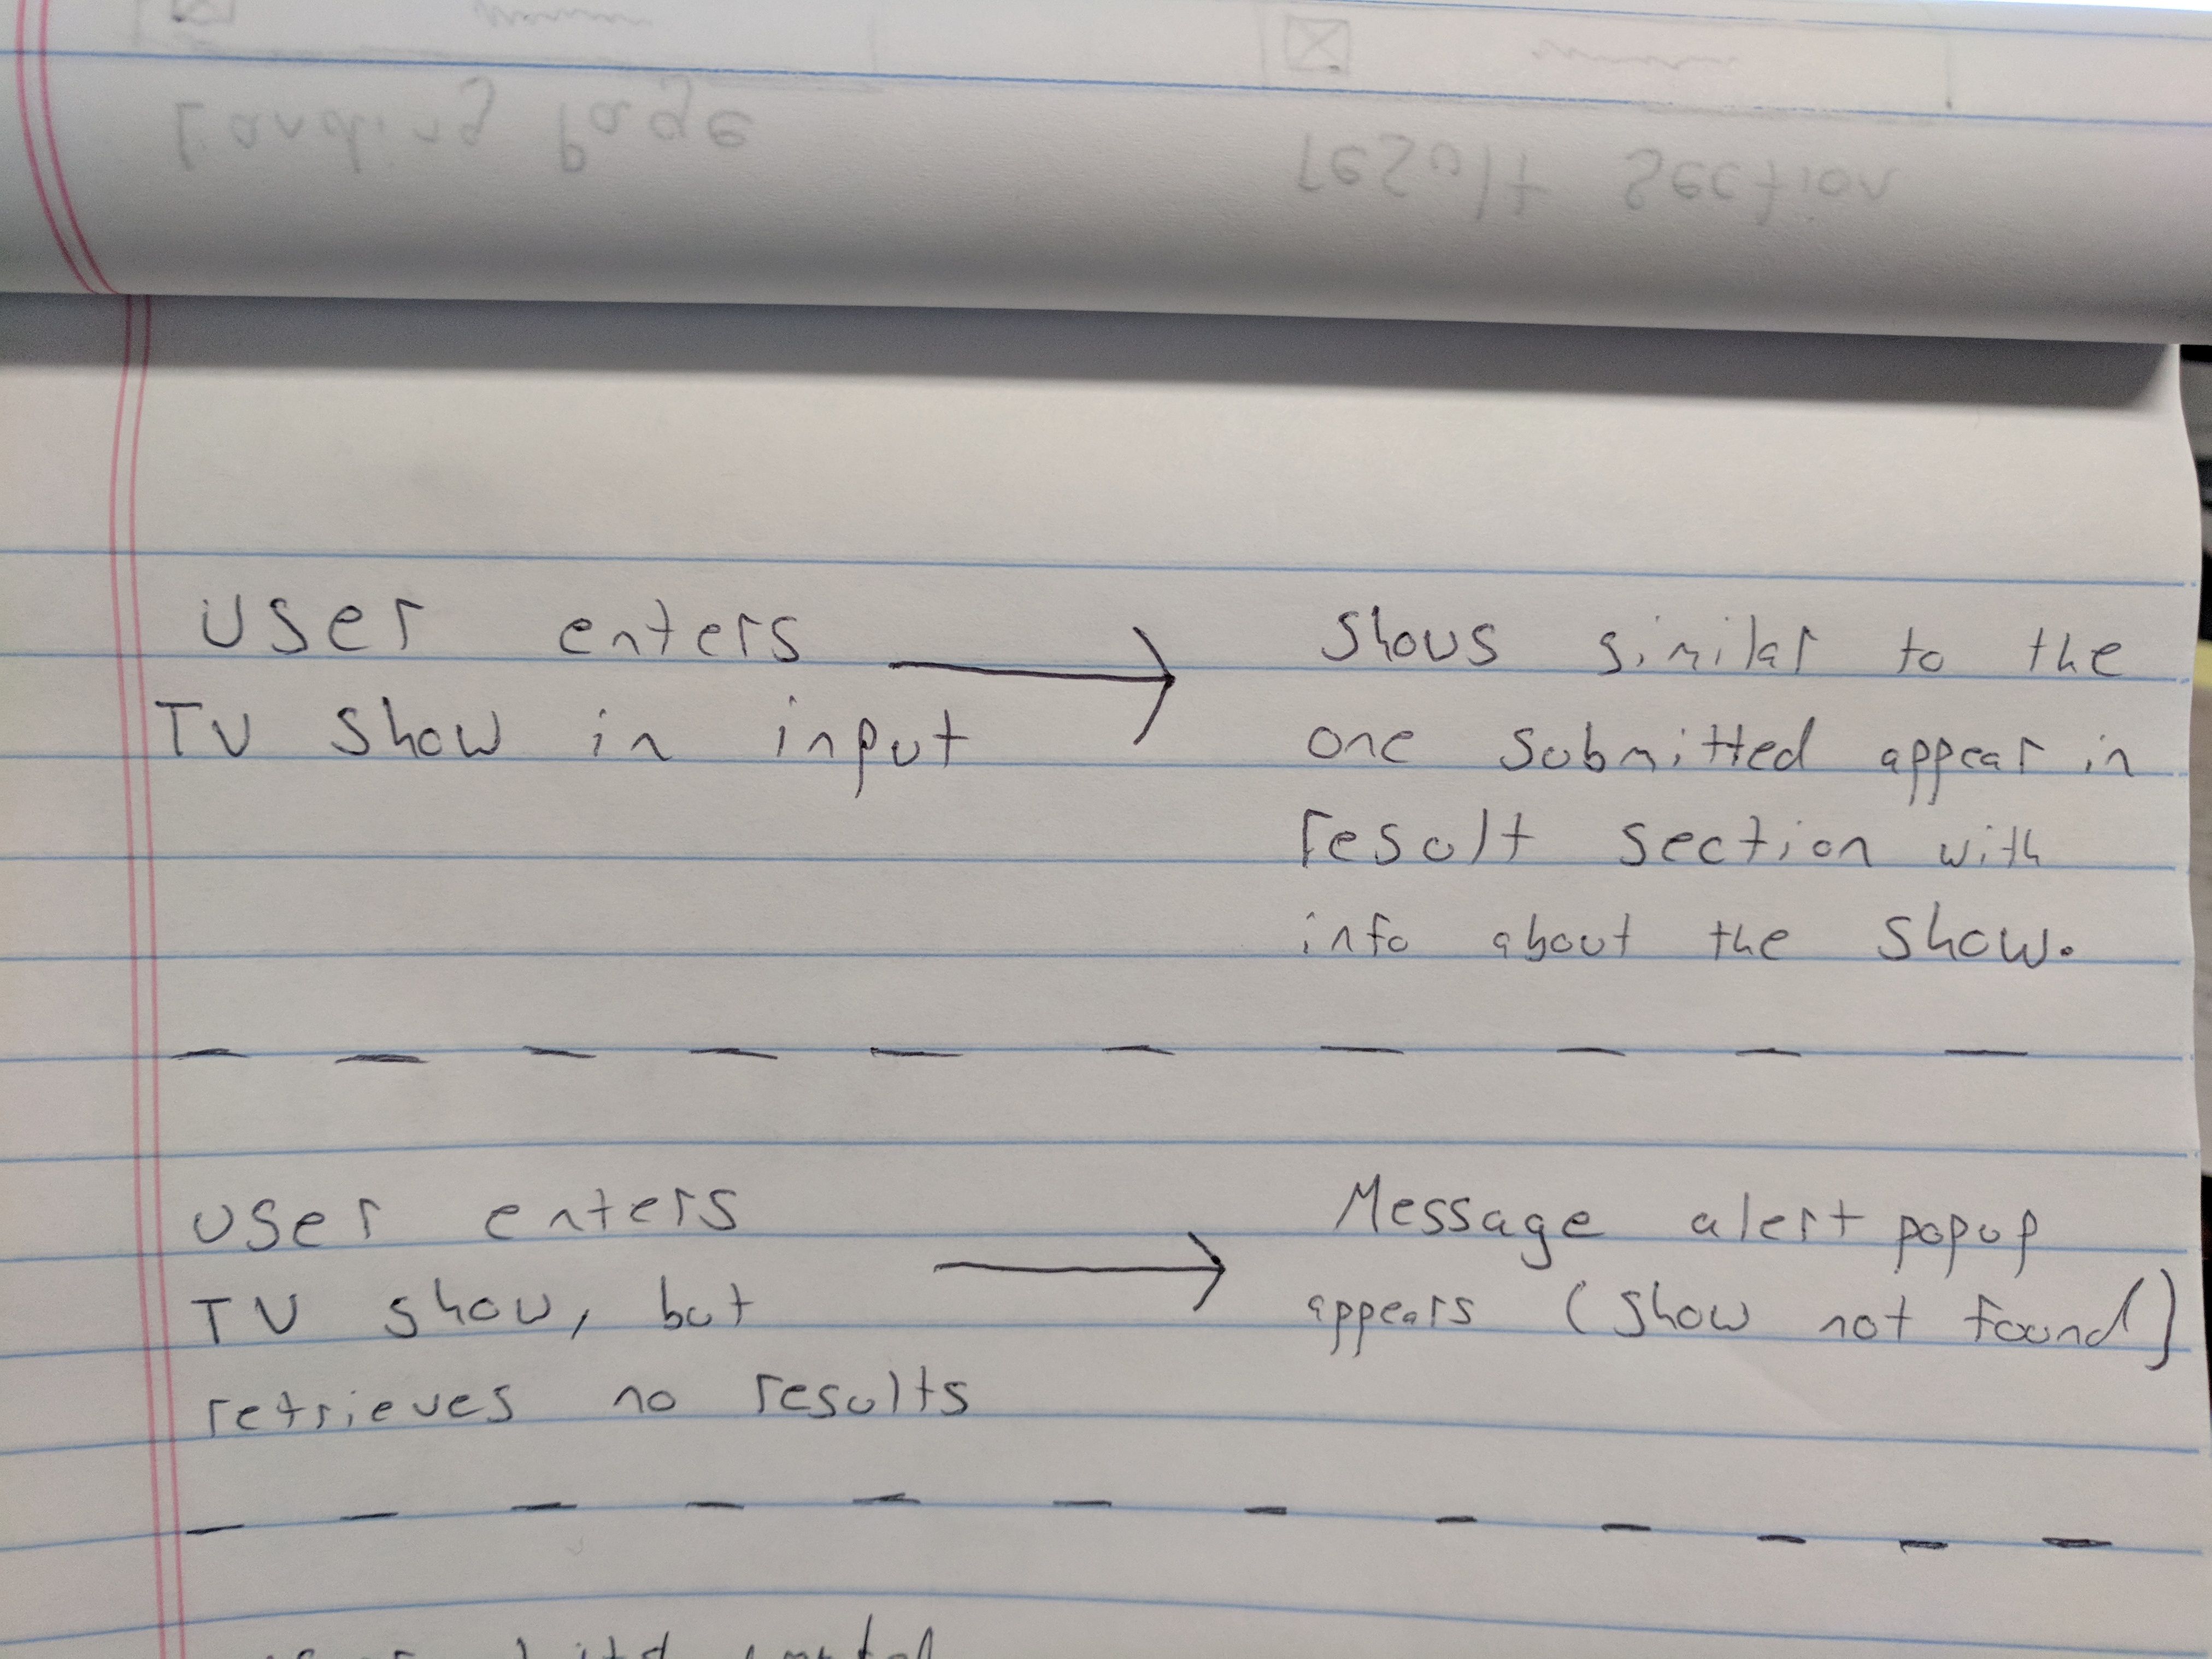 Landing Page
result section
User enters
TV Show in input
Shows similar to the
one submitted appear in
result section with
info about the show.
User enters
TV show, but
retrieves no results
Message alert popup
appears (show not found)